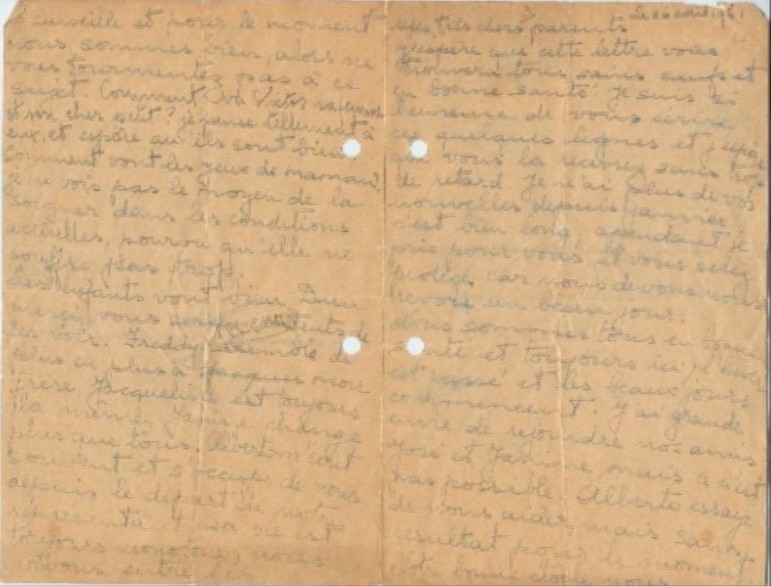 très chers parents
j'espère que cette lettre vous
trouvera tous sains saufs et
en bonne santé. Je suis si
heureuse de vous écrire
ces quelques lignes et j'espère
que vous la recevrez sans trop
de retard. Je n'ai plus de vos
nouvelles depuis janvier
c'est bien long, cependant je
prie pour vous et vous serez
car nous devons nous
revoir un beau jour.
Nous sommes tous en bonne
santé et toujours ici
est passé et les beaux jours
commencent. J'ai grande
envie de rejoindre nos amis
José et Janine mais c'est
pas possible. Alberto essaye
de nous aider mais sans
résultat pour le moment
surveille et pour le moment
nous sommes bien, alors ne
vous tourmentez pas à ce
sujet. Comment va Victor
et mon cher petit? je pense tellement à
eux, et espère qu'ils sont bien
Comment vont les yeux de maman?
je ne vois pas le moyen de la
soigner dans les conditions
actuelles, pourvu qu'elle ne
souffre pas trop.
Les enfants vont bien Dieu
merci, vous contents de
les voir. Freddy ressemble de
plus en plus à Jacques mon
frère, Jacqueline est toujours
la même, Janine change
plus que tous. Alberto
souvent et s'occupe de nous
depuis le départ de
représentant. La vie est
toujours monotone, nous
vivons entre les